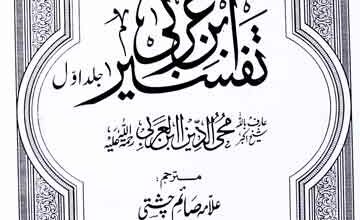 تفسیر ابن عربی
جلد اوّل
عارف باللہ
شیخ اکبر
محی الدین ابن العربی رحمۃ اللہ علیہ
مترجم:
علامہ صائم چشتی